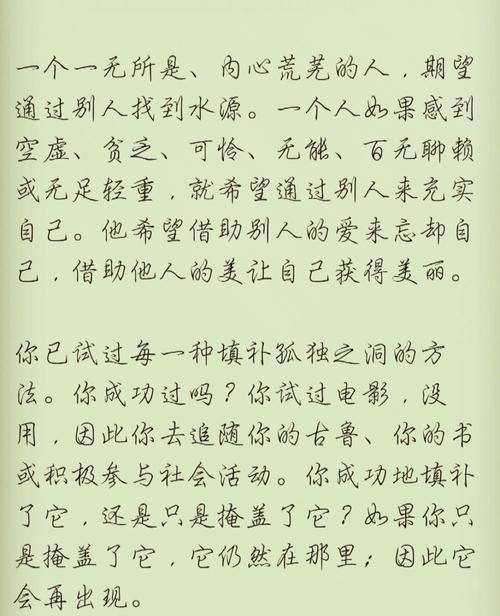 一个一无所是、内心荒芜的人，期望
通过别人找到水源。一个人如果感到
空虚、贫乏、可怜、无能、百无聊赖
或无足轻重，就希望通过别人来充实
自己。他希望借助别人的爱来忘却自
己，借助他人的美让自己获得美丽。
你已试过每一种填补孤独之洞的方
法。你成功过吗？你试过电影，没
用，因此你去追随你的古鲁、你的书
或积极参与社会活动。你成功地填补
了它，还是只是掩盖了它？如果你只
是掩盖了它，它仍然在那里；因此它
会再出现。